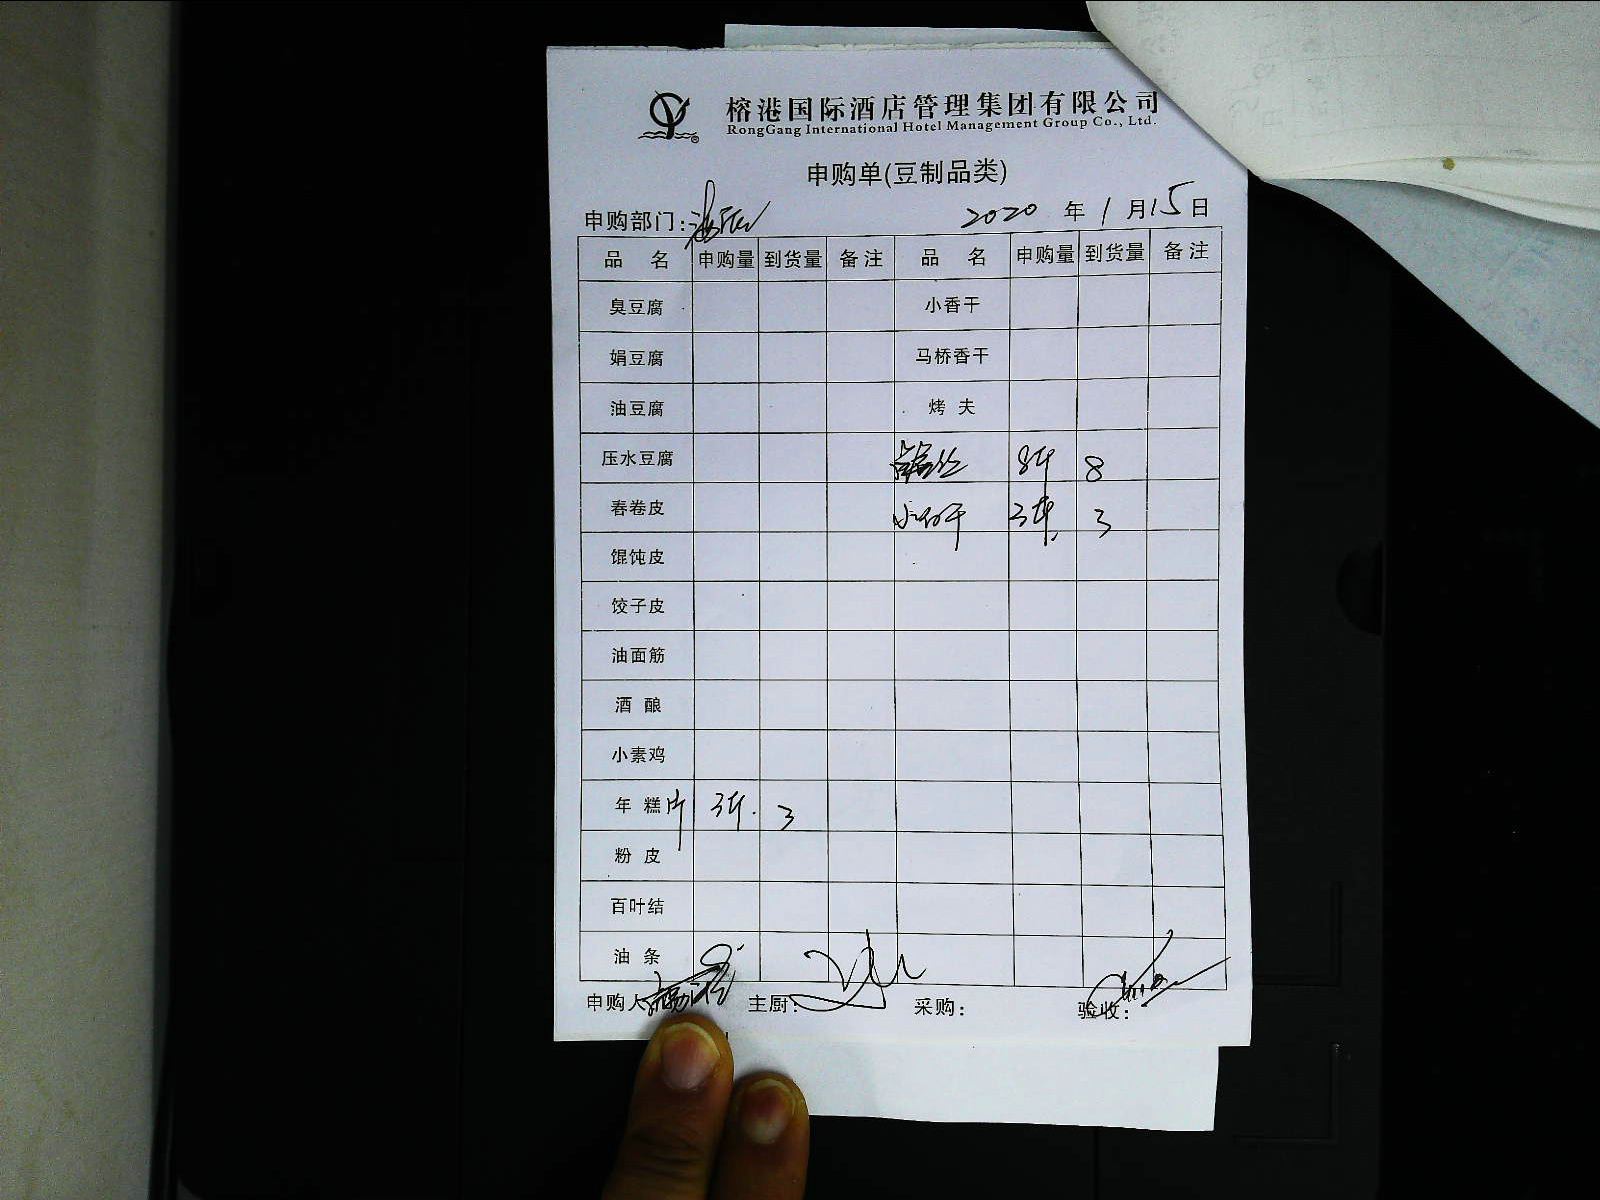 榕港国际酒店管理集团有限公司
RongGang International Hotel Management Group Co., Ltd.
申购单(豆制品类)
申购部门: 2020 年 1 月 15 日
品 名 申购量 到货量 备注 品 名 申购量 到货量 备注
臭豆腐 小香干
娟豆腐 马桥香干
油豆腐 烤 夫
压水豆腐 8斤 8
春卷皮 3斤 3
馄饨皮
饺子皮
油面筋
酒 酿
小素鸡
年 糕片 3斤 3
粉 皮
百叶结
油 条
申购人 主厨: 采购: 验收: